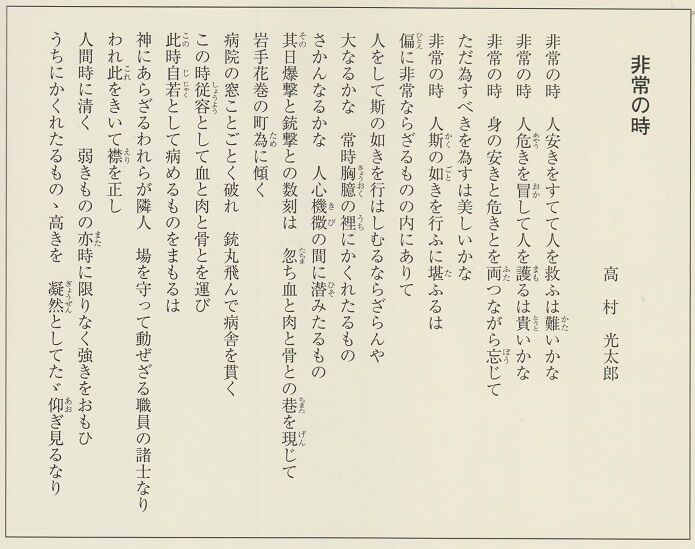 非常の時
高村光太郎
非常の時　人安きをすてて人を救ふは難いかな
非常の時　人危きを冒して人を護るは貴いかな
非常の時　身の安きと危きとを両つながら忘じて
ただ為すべきを為すは美しいかな
非常の時　人斯の如きを行ふに堪ふるは
偏に非常ならざるものの内にありて
人をして斯の如きを行はしむるならざらんや
大なるかな　常時胸臆の裡にかくれたるもの
さかんなるかな　人心機微の間に潜みたるもの
其日爆撃と銃撃との数刻は　忽ち血と肉と骨との巷を現じて
岩手花巻の町為に傾く
病院の窓ことごとく破れ　銃丸飛んで病舎を貫く
この時従容として血と肉と骨とを運び
此時自若として病めるものをまもるは
神にあらざるわれらが隣人　場を守って動ぜざる職員の諸士なり
われ此をきいて襟を正し
人間時に清く　弱きものの亦時に限りなく強きをおもひ
うちにかくれたるものゝ高きを　凝然としてたゞ仰ぎ見るなり